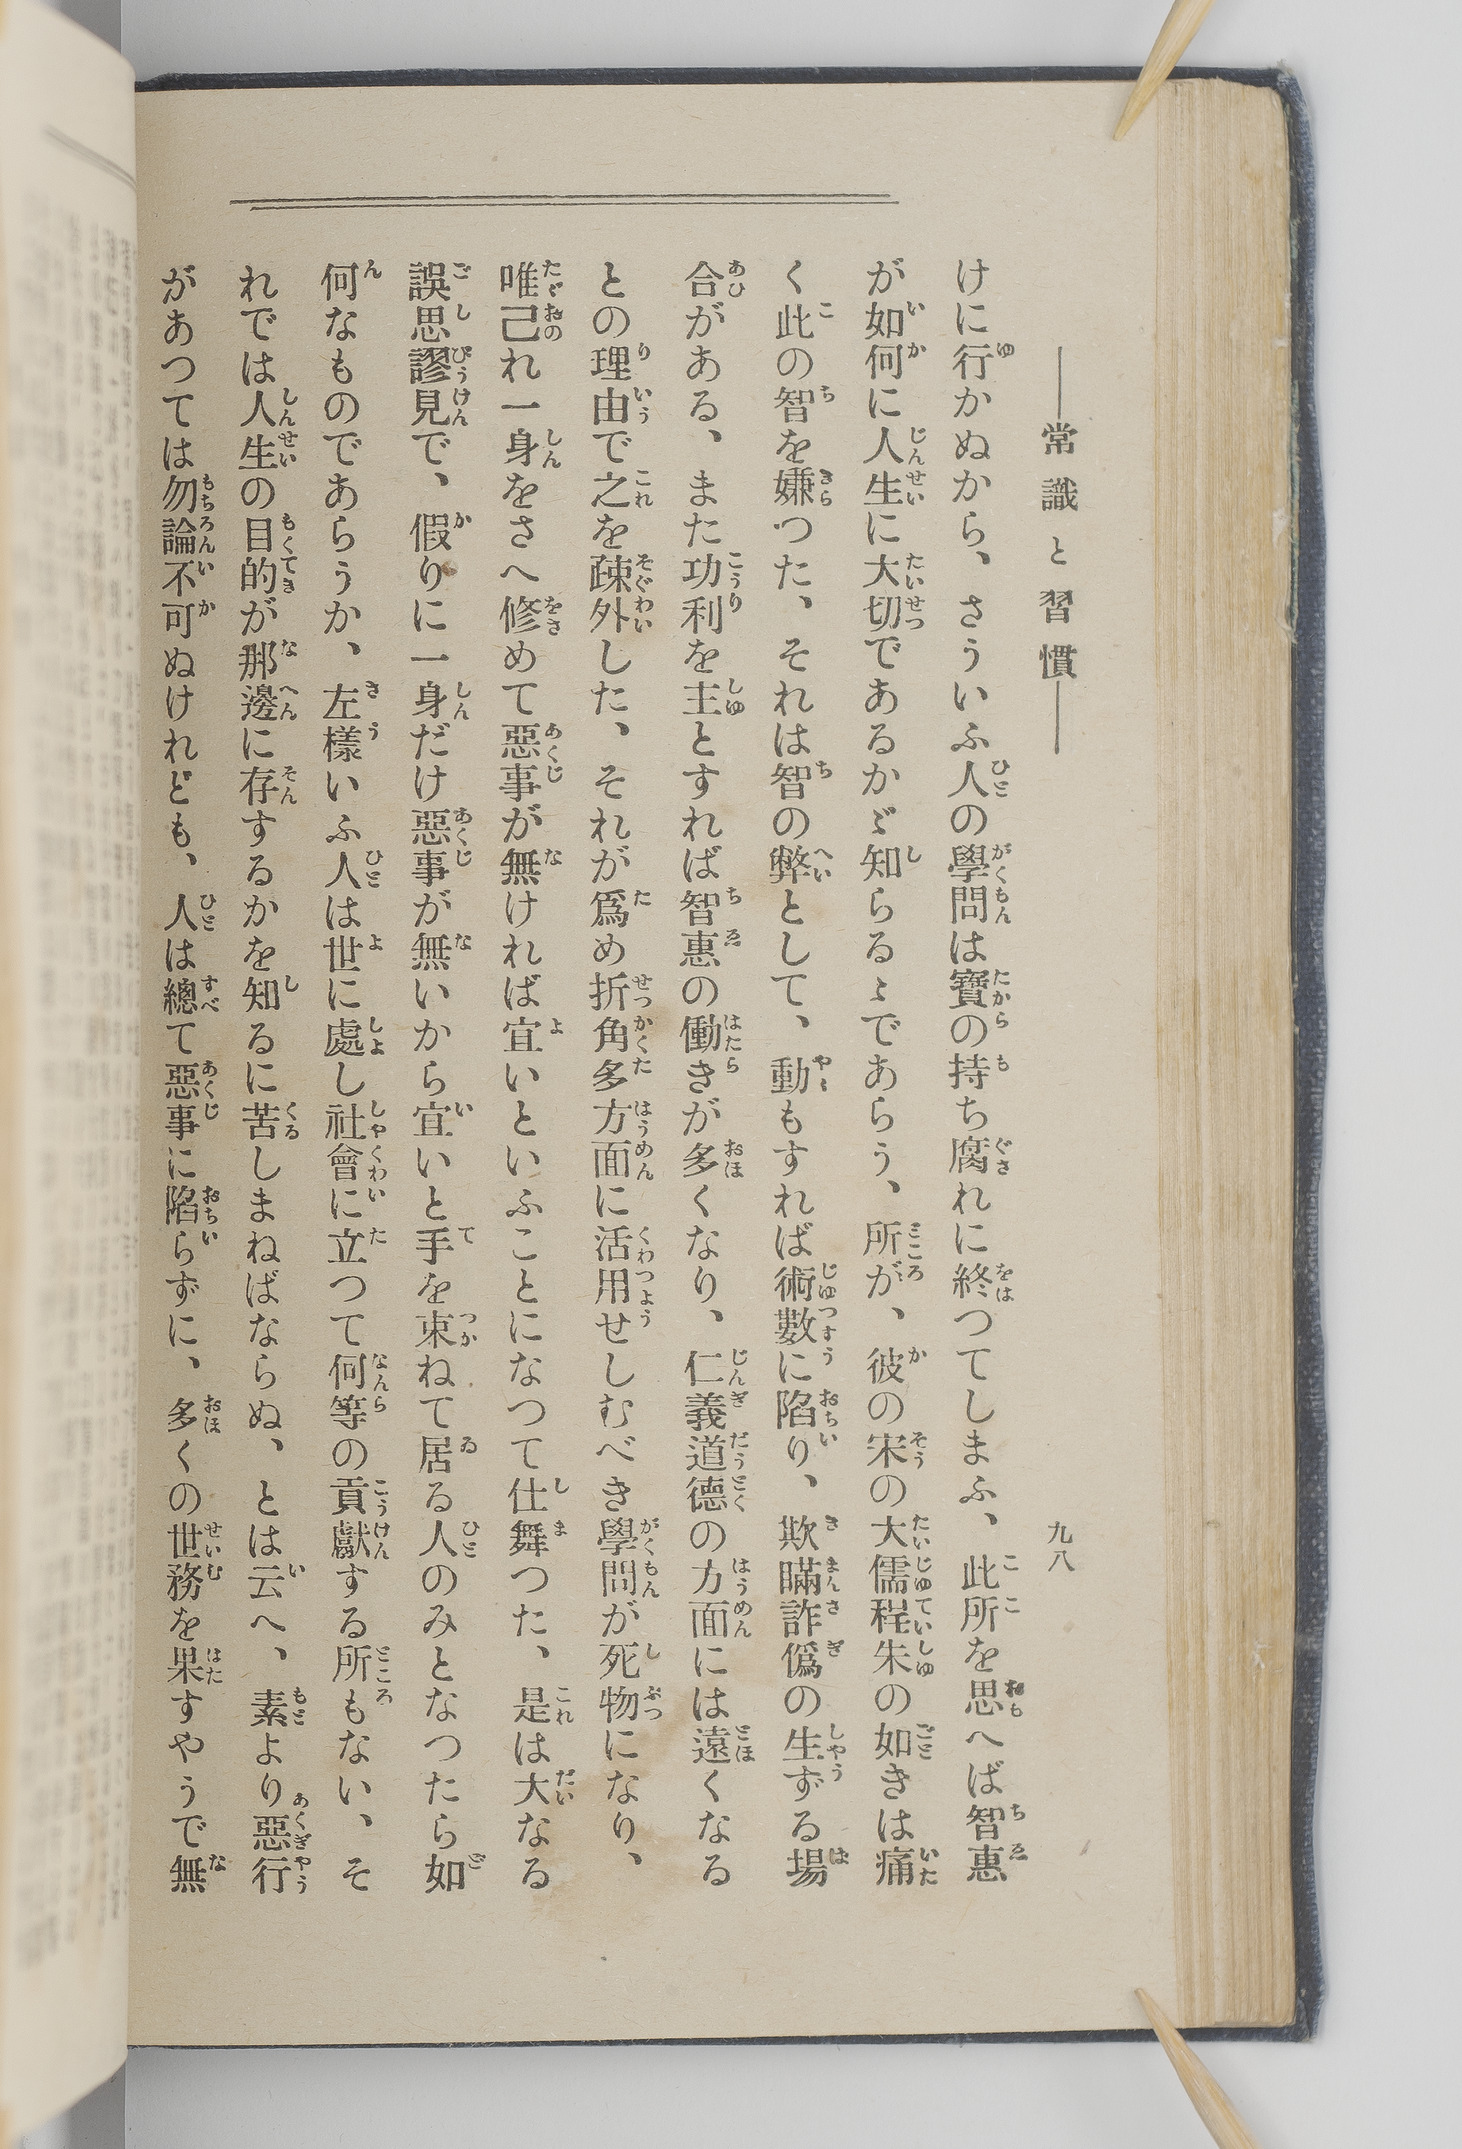 ―常識と習慣―
九八
けに行かぬから、さういふ人の學問は寶の持ち腐れに終つてしまふ、此所を思へば智惠
が如何に人生に大切であるかゞ知らるゝであらう、所が、彼の宋の大儒程朱の如きは痛
く此の智を嫌つた、それは智の弊として、動もすれば術數に陷り、欺瞞詐僞の生ずる場
合がある、また功利を主とすれば智惠の働きが多くなり、仁義道德の方面には遠くなる
との理由で之を疎外した、それが爲め折角多方面に活用せしむべき學問が死物になり、
唯己れ一身をさへ修めて惡事が無ければ宜いといふことになつて仕舞つた、是は大なる
誤思謬見で、假りに一身だけ惡事が無いから宜いと手を束ねて居る人のみとなつたら如
何なものであらうか、左樣いふ人は世に處し社會に立つて何等の貢獻する所もない、そ
れでは人生の目的が那邊に存するかを知るに苦しまねばならぬ、とは云へ、素より惡行
があつては勿論不可ぬけれども、人は總て惡事に陷らずに、多くの世務を果すやうで無